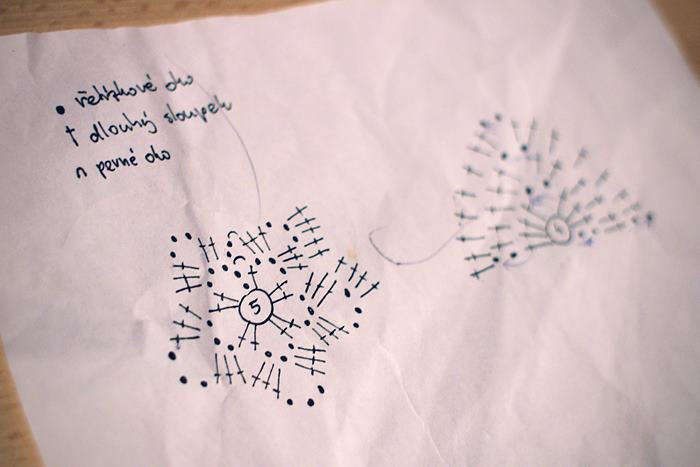 řetízkové oko
dlouhý sloupek
pevné oko
5